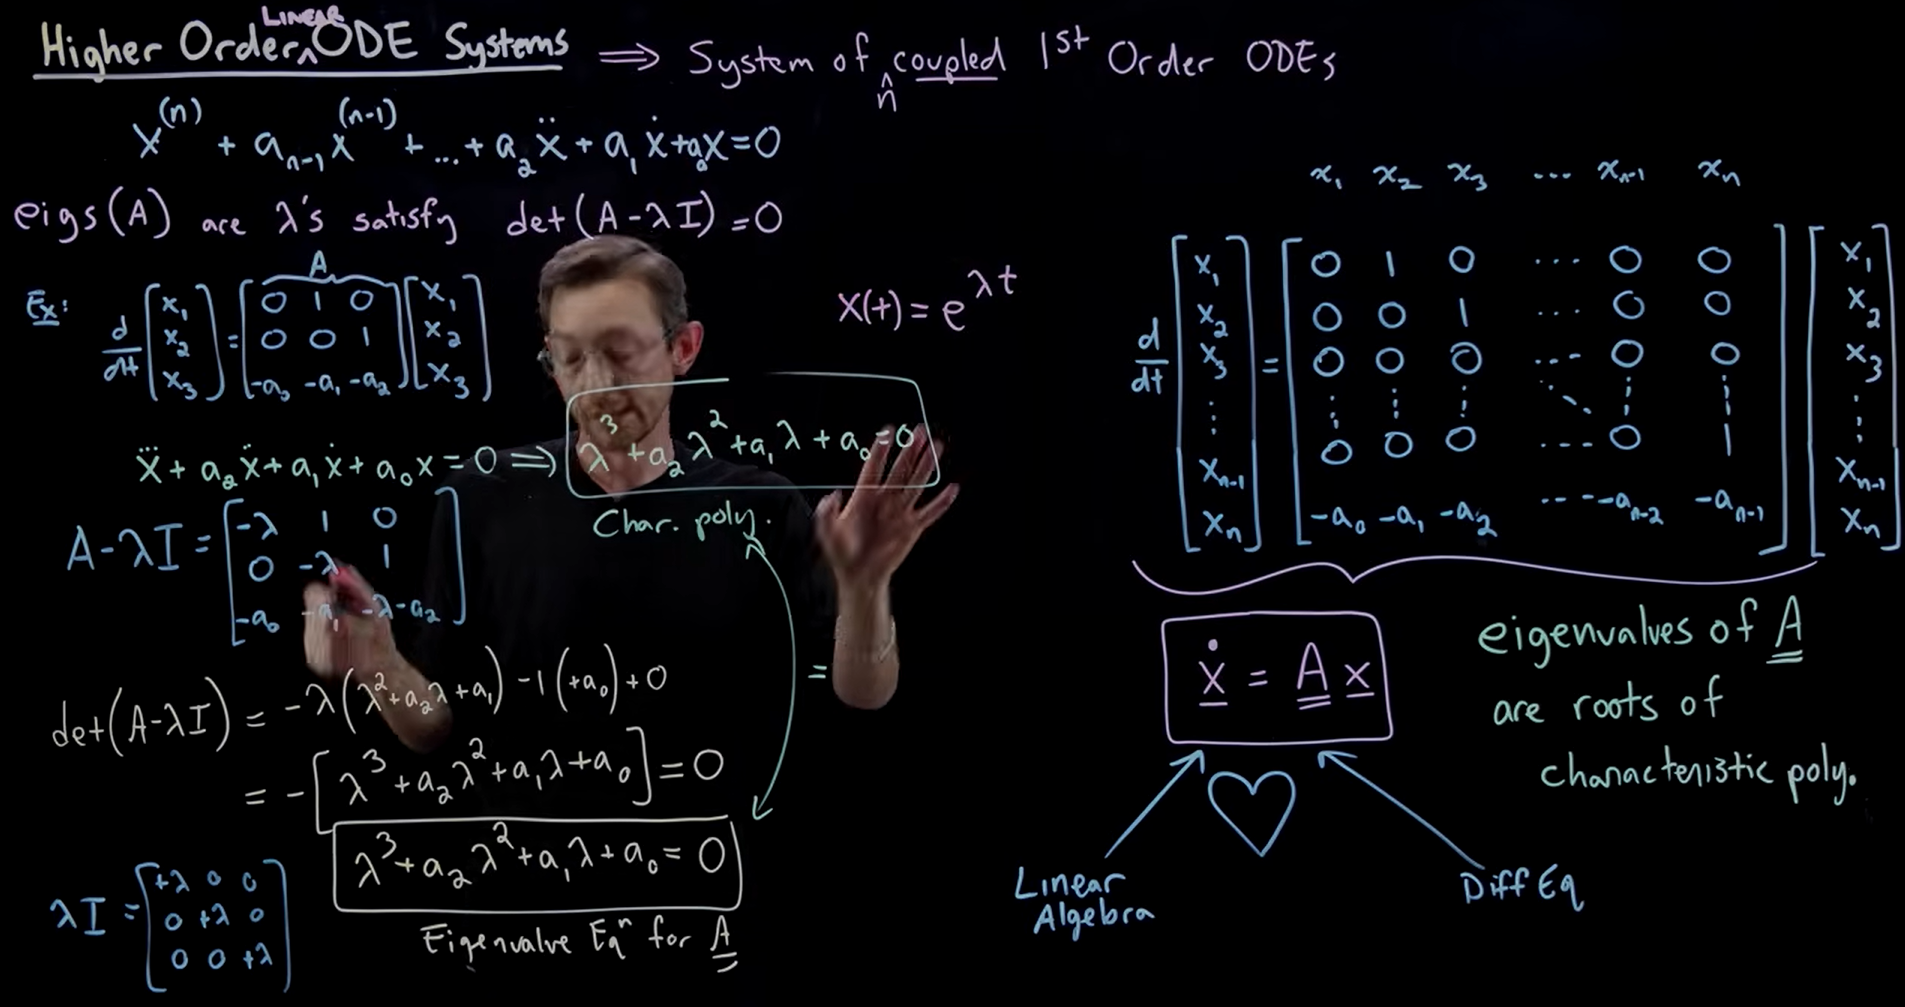 Higher Order LINEAR ODE Systems ⟹ System of n coupled 1st Order ODEs
x^(n) + a_{n-1} x^(n-1) + ... + a_2 ẍ + a_1 ẋ + a_0 x = 0
eigs(A) are λ's satisfy det(A-λI) = 0
A
Ex: d/dt [x_1; x_2; x_3] = [0 1 0; 0 0 1; -a_0 -a_1 -a_2] [x_1; x_2; x_3]
x(t) = e^{λt}
x⃛ + a_2 ẍ + a_1 ẋ + a_0 x = 0 ⟹ λ^3 + a_2 λ^2 + a_1 λ + a_0 = 0
Char. poly.
A-λI = [-λ 1 0; 0 -λ 1; -a_0 -a_1 -λ-a_2]
det(A-λI) = -λ(λ^2 + a_2 λ + a_1) - 1(+a_0) + 0
=
= -[λ^3 + a_2 λ^2 + a_1 λ + a_0] = 0
λ^3 + a_2 λ^2 + a_1 λ + a_0 = 0
Eigenvalue Eqn for A
λI = [+λ 0 0; 0 +λ 0; 0 0 +λ]
x_1 x_2 x_3 ... x_{n-1} x_n
d/dt [x_1; x_2; x_3; ⋮; x_{n-1}; x_n] = [0 1 0 ... 0 0; 0 0 1 ... 0 0; 0 0 0 ... 0 0; ⋮ ⋮ ⋮ ⋱ ⋮ ⋮; 0 0 0 ... 0 1; -a_0 -a_1 -a_2 ... -a_{n-2} -a_{n-1}] [x_1; x_2; x_3; ⋮; x_{n-1}; x_n]
ẋ = A x
eigenvalues of A
are roots of
characteristic poly.
Linear
Algebra
Diff Eq